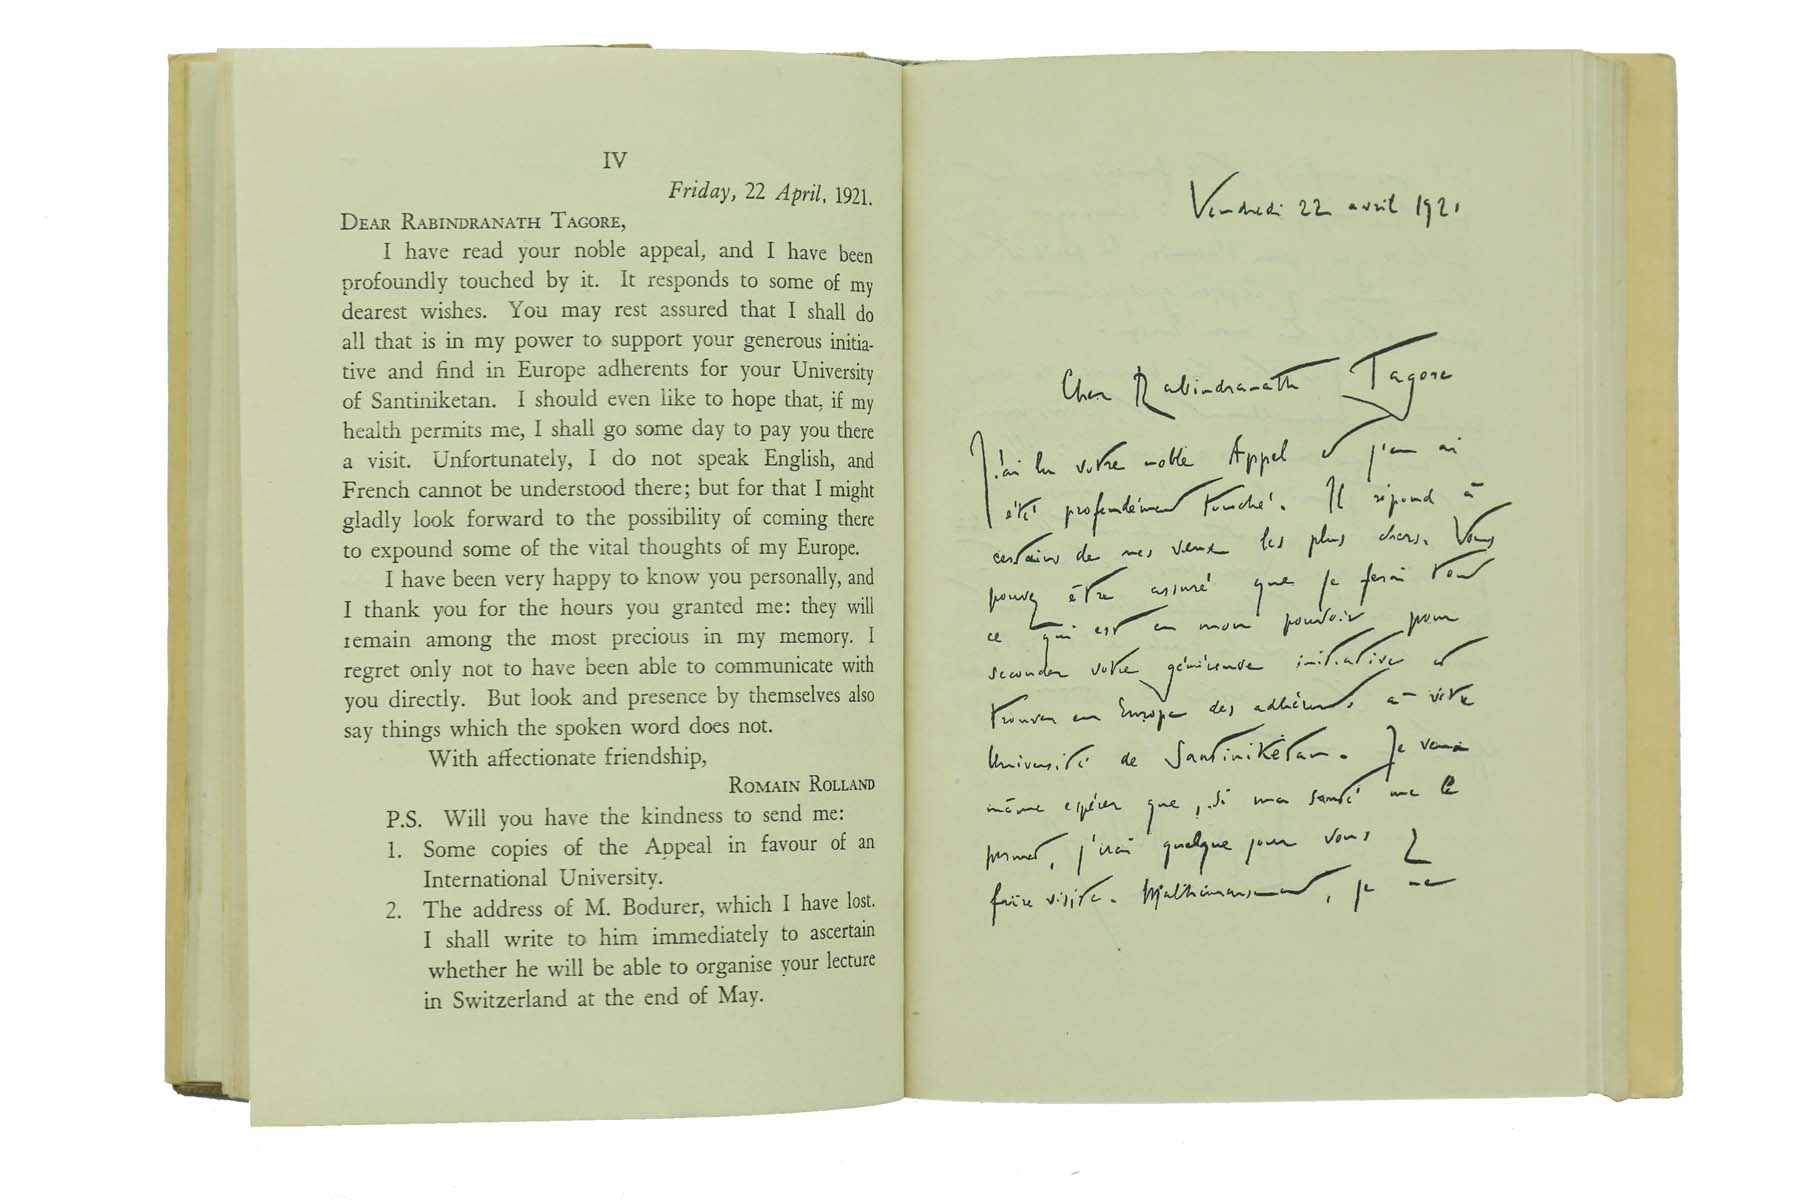 IV
Friday, 22 April, 1921.
DEAR RABINDRANATH TAGORE,
I have read your noble appeal, and I have been
profoundly touched by it. It responds to some of my
dearest wishes. You may rest assured that I shall do
all that is in my power to support your generous initia-
tive and find in Europe adherents for your University
of Santiniketan. I should even like to hope that, if my
health permits me, I shall go some day to pay you there
a visit. Unfortunately, I do not speak English, and
French cannot be understood there; but for that I might
gladly look forward to the possibility of coming there
to expound some of the vital thoughts of my Europe.
I have been very happy to know you personally, and
I thank you for the hours you granted me: they will
remain among the most precious in my memory. I
regret only not to have been able to communicate with
you directly. But look and presence by themselves also
say things which the spoken word does not.
With affectionate friendship,
ROMAIN ROLLAND
P.S. Will you have the kindness to send me:
1. Some copies of the Appeal in favour of an
International University.
2. The address of M. Bodurer, which I have lost.
I shall write to him immediately to ascertain
whether he will be able to organise your lecture
in Switzerland at the end of May.
Vendredi 22 avril 1921
Cher Rabindranath Tagore
J'ai lu votre noble Appel et j'en ai
été profondément touché. Il répond à
certains de mes vœux les plus chers. Vous
pouvez être assuré que je ferai tout
ce qui est en mon pouvoir pour
seconder votre généreuse initiative et
trouver en Europe des adhérents à votre
Université de Santiniketan. Je veux
même espérer que, si ma santé me le
permet, j'irai quelque jour vous y
faire visite. Malheureusement, je ne